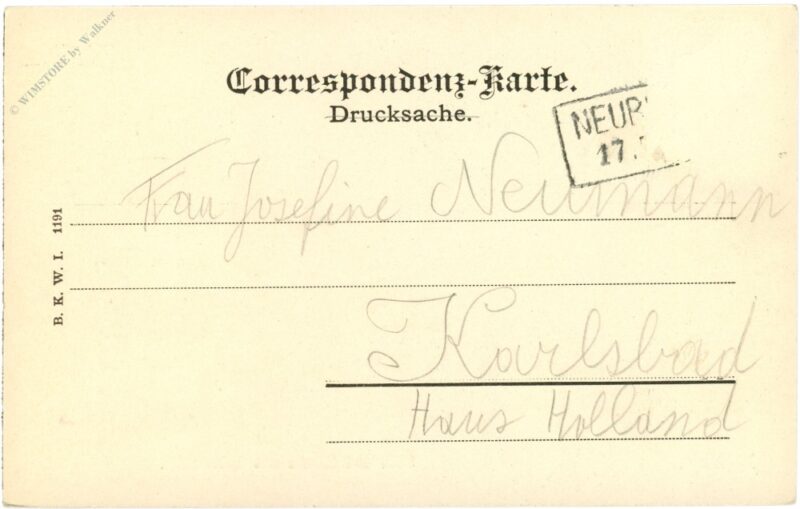 © WIMSTORE by Walkner
Correspondenz-Karte.
Drucksache.
17.
Frau Josefine Neumann
Karlsbad
Haus Holland
B. K. W. I. 1191